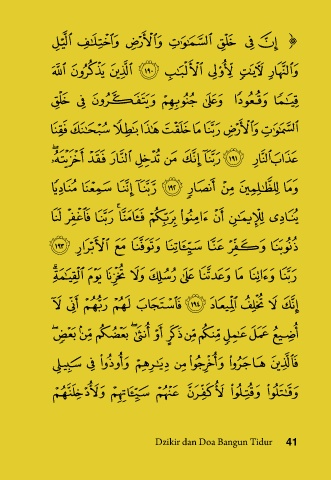 ﴿ إِنَّ فِى خَلْقِ ٱلسَّمَـٰوَٰتِ وَٱلْأَرْضِ وَٱخْتِلَـٰفِ ٱلَّيْلِ
وَٱلنَّهَارِ لَـَٔايَـٰتٍ لِّأُو۟لِى ٱلْأَلْبَـٰبِ ١٩٠ ٱلَّذِينَ يَذْكُرُونَ ٱللَّهَ
قِيَـٰمًا وَقُعُودًا وَعَلَىٰ جُنُوبِهِمْ وَيَتَفَكَّرُونَ فِى خَلْقِ
ٱلسَّمَـٰوَٰتِ وَٱلْأَرْضِ رَبَّنَا مَا خَلَقْتَ هَـٰذَا بَـٰطِلًا سُبْحَـٰنَكَ فَقِنَا
عَذَابَ ٱلنَّارِ ١٩١ رَبَّنَآ إِنَّكَ مَن تُدْخِلِ ٱلنَّارَ فَقَدْ أَخْزَيْتَهُۥ ۖ
وَمَا لِلظَّـٰلِمِينَ مِنْ أَنصَارٍ ١٩٢ رَّبَّنَآ إِنَّنَا سَمِعْنَا مُنَادِيًا
يُنَادِى لِلْإِيمَـٰنِ أَنْ ءَامِنُوا۟ بِرَبِّكُمْ فَـَٔامَنَّا ۚ رَبَّنَا فَٱغْفِرْ لَنَا
ذُنُوبَنَا وَكَفِّرْ عَنَّا سَيِّـَٔاتِنَا وَتَوَفَّنَا مَعَ ٱلْأَبْرَارِ ١٩٣
رَبَّنَا وَءَاتِنَا مَا وَعَدتَّنَا عَلَىٰ رُسُلِكَ وَلَا تُخْزِنَا يَوْمَ ٱلْقِيَـٰمَةِ ۗ
إِنَّكَ لَا تُخْلِفُ ٱلْمِيعَادَ ١٩٤ فَٱسْتَجَابَ لَهُمْ رَبُّهُمْ أَنِّى لَآ
أُضِيعُ عَمَلَ عَـٰمِلٍ مِّنكُم مِّن ذَكَرٍ أَوْ أُنثَىٰ ۖ بَعْضُكُم مِّنۢ بَعْضٍ ۖ
فَٱلَّذِينَ هَاجَرُوا۟ وَأُخْرِجُوا۟ مِن دِيَـٰرِهِمْ وَأُوذُوا۟ فِى سَبِيلِى
وَقَـٰتَلُوا۟ وَقُتِلُوا۟ لَأُكَفِّرَنَّ عَنْهُمْ سَيِّـَٔاتِهِمْ وَلَأُدْخِلَنَّهُمْ
Dzikir dan Doa Bangun Tidur 41